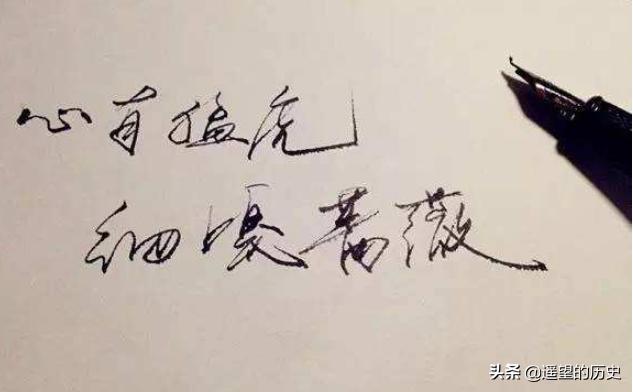 心有猛虎
细嗅蔷薇
头条 @遥望的历史